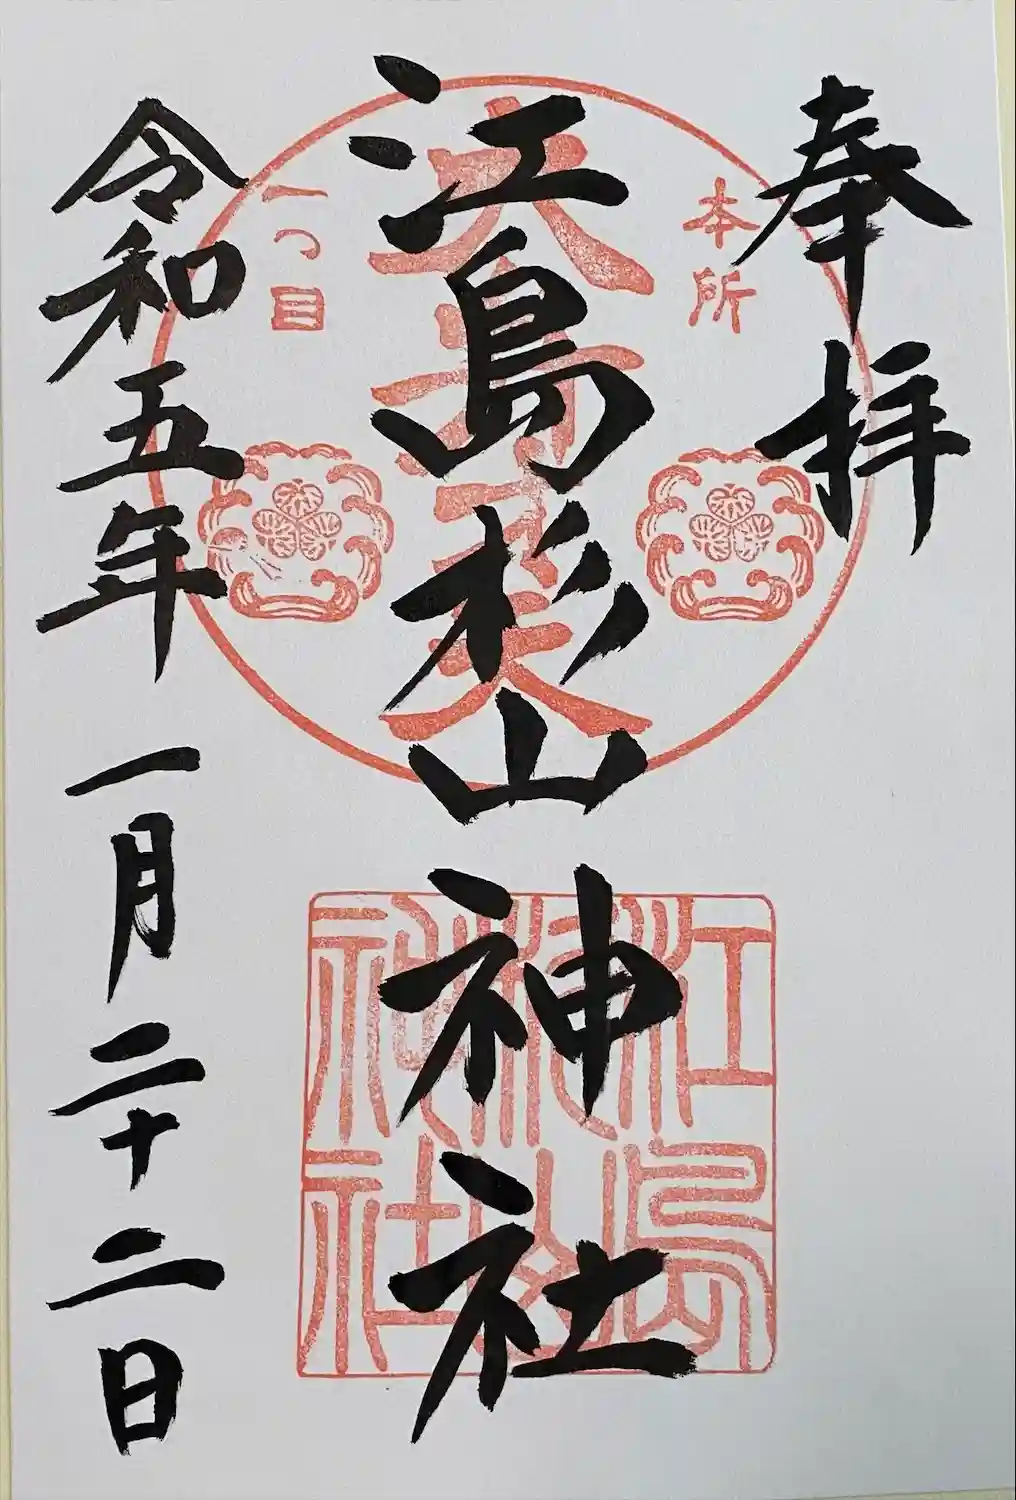 奉拝
本所
江島杉山神社
一つ目
江島
杉山
神社
令和五年一月二十二日